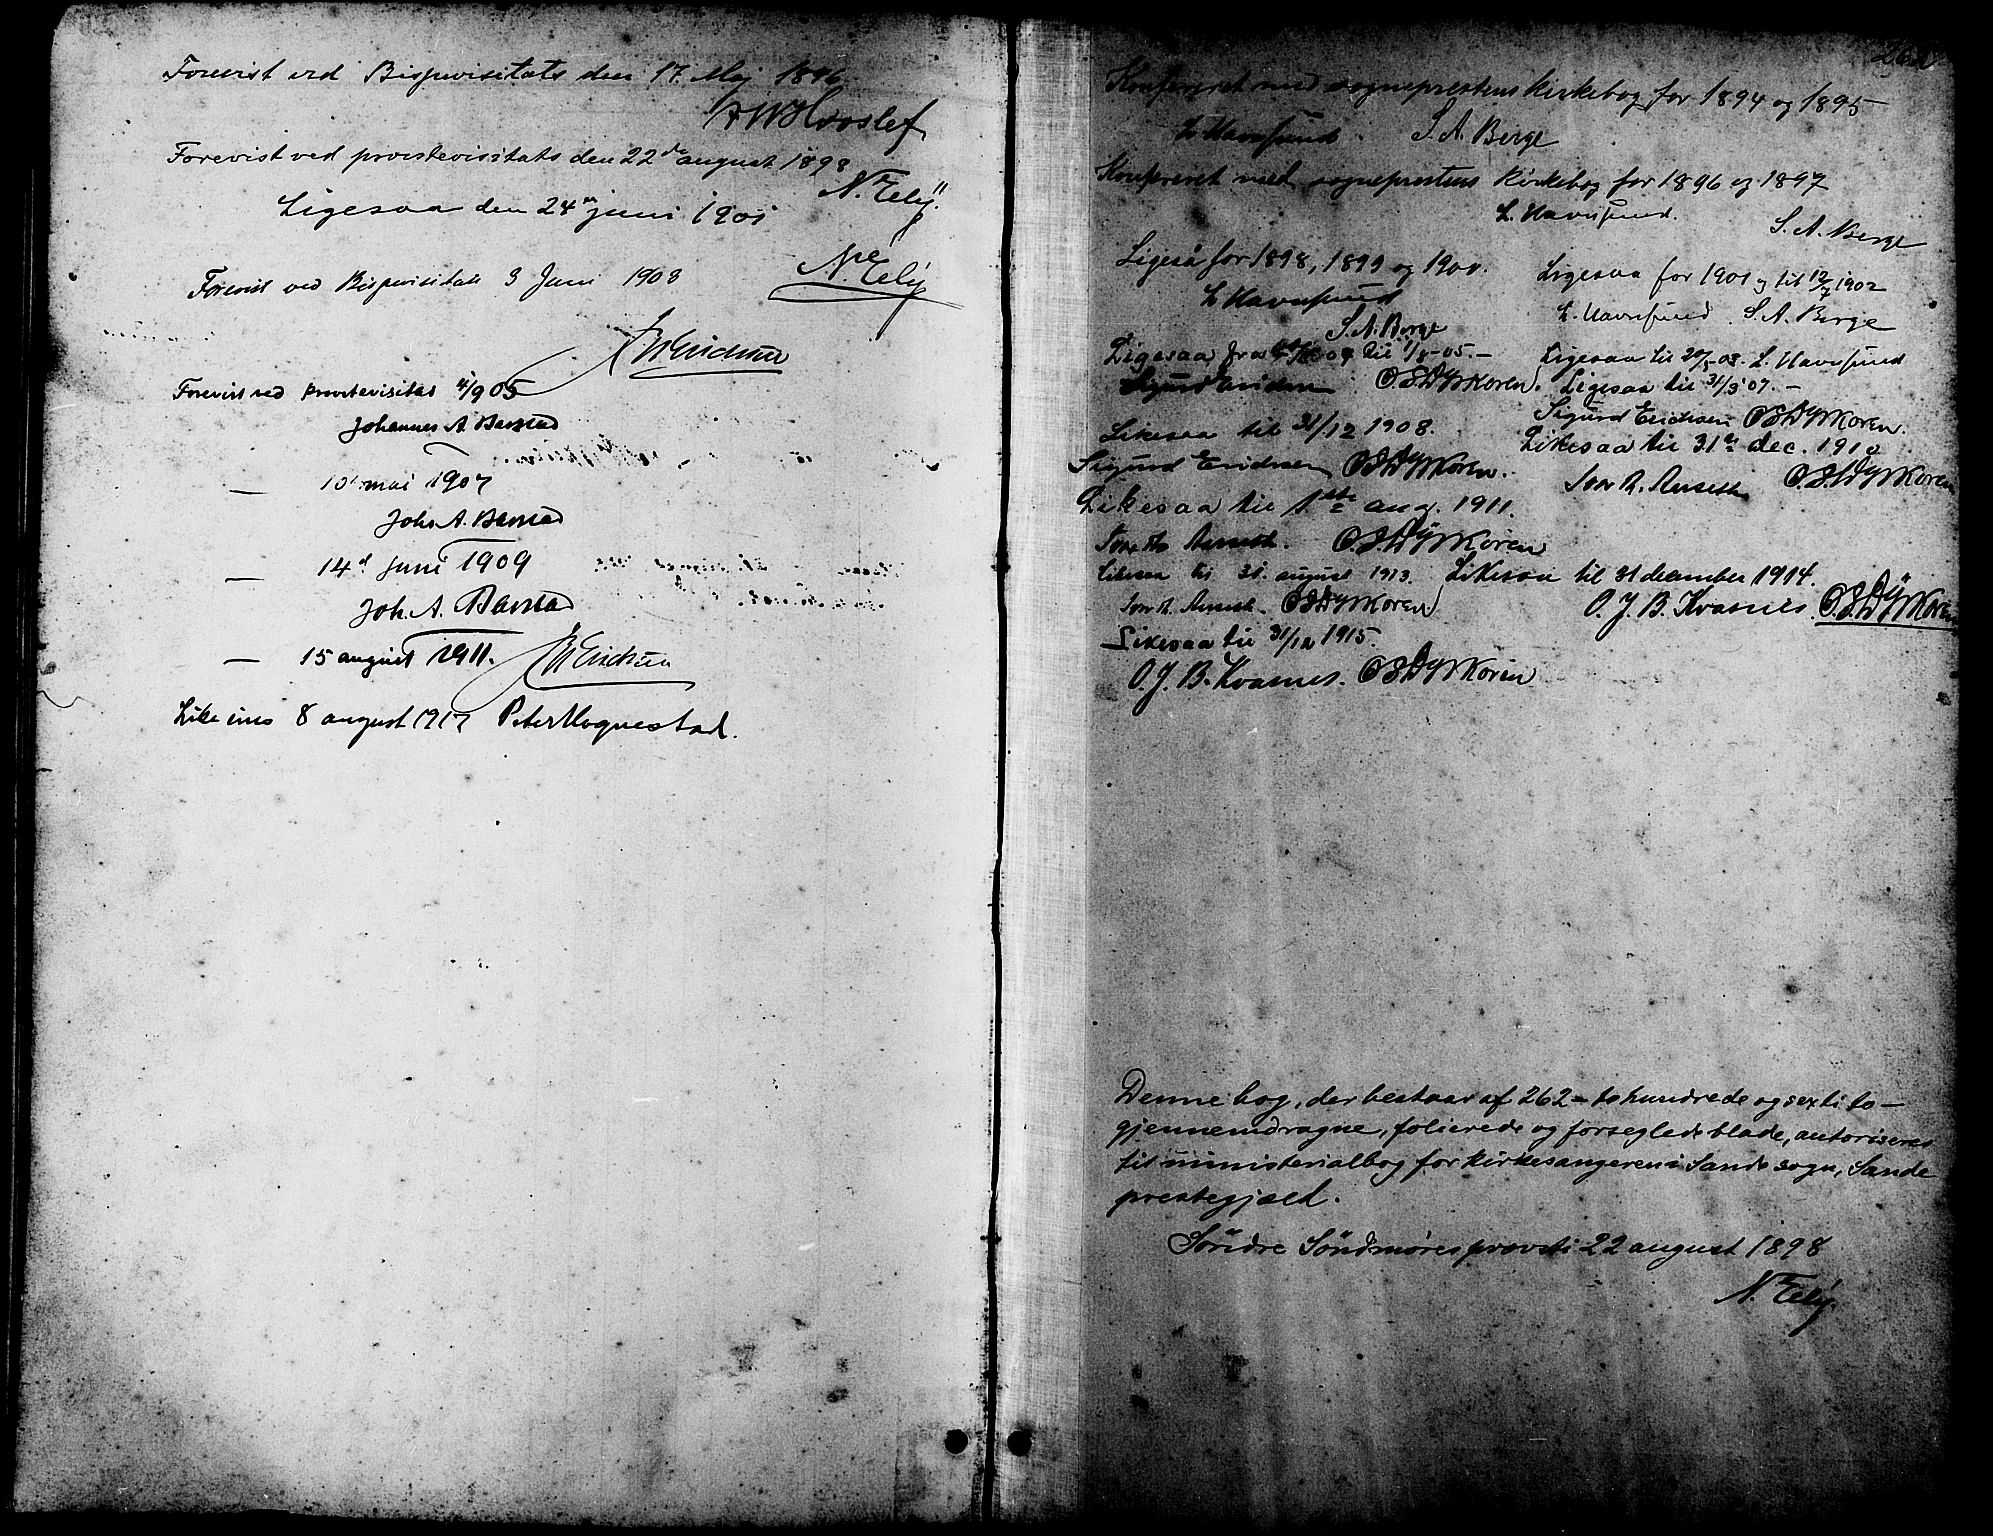 Forevist ved Bispevisitats den 17. Maj 1896
Forevist ved provstevisitats den 22de august 1898
N. Eely.
Ligesaa den 24de juni 1901
N. Eely
Forevist ved Bispevisitats 3 Juni 1903
Forevist ved provstevisitas 4/905
Johannes A. Barstad
— 10' mai 1907
Joh. A. Barstad
— 14d juni 1909
Joh. A. Barstad
— 15 august 1911.
Like eins 8 august 1917 Peter Hognestad.
262
Konfereret med sogneprestens kirkebog for 1894 og 1895
L. Havnsund. S. A. Berge
Konfereret med sogneprestens kirkebog for 1896 og 1897
L. Havnsund.
S. A. Berge
Ligeså for 1898, 1899 og 1900.
L. Havnsund
S. A. Berge
Ligesaa for 1901 og til 12/7 1902
L. Havnsund. S. A. Berge
Ligesaa fra 04 til 1/8-05.—
Sigurd Eridsen O.S.Dyrkoren.
Ligesaa til 03. L. Havnsund
Ligesaa til 31/3 07.—
Sigurd Eridsen O.S.Dyrkoren.
Likesaa til 31/12 1908.
Sigurd Eridsen O.S.Dyrkoren.
Likesaa til 31te dec. 1910
O.S.Dyrkoren
Likesaa til 1ste aug. 1911.
O.S.Dyrkoren
Likesaa til 31. august 1913.
O.S.Dyrkoren
Likesaa til 31 december 1914.
O. J. B. Kvasnes. O.S.Dyrkoren
Likesaa til 31/12 1915.
O. J. B. Kvasnes. O.S.Dyrkoren
Denne bog, der bestaar af 262 – to hundrede og sexti to –
gjennemdragne, folierede og forseglede blade, autoriseres
til ministerialbog for kirkesangeren i Sande sogn, Sande
prestegjæld.
Söndre Söndmöres provsti 22 august 1898
N. Eely.